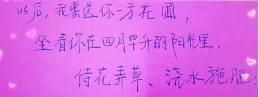 以后，我要送你一方花圃，
坐看你在四月早升的阳光里，
侍花弄草、浇水施肥；